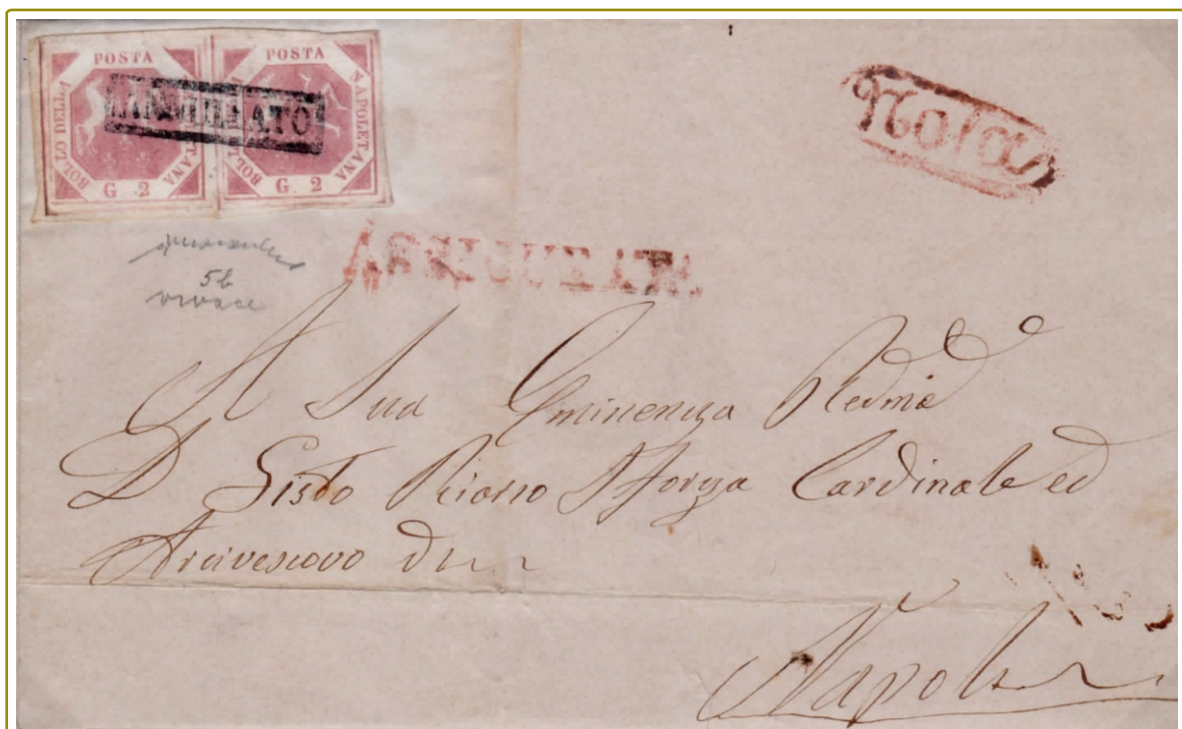 POSTA POSTA
BOLLO DELLA NAPOLETANA BOLLO DELLA NAPOLETANA
G. 2 G. 2
ANNULLATO
Nola
ASSICURATA
5b
vivace
A Sua Eminenza Redma
D Sisto Riario Sforza Cardinale ed
Arcivescovo di
Napoli